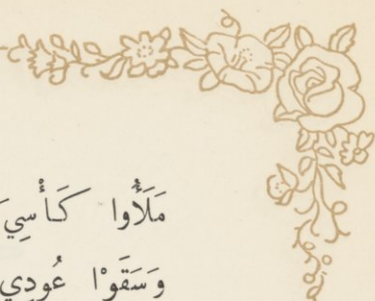 مَلَأُوا كَأْسِي
وَسَقَوْا عُودِي